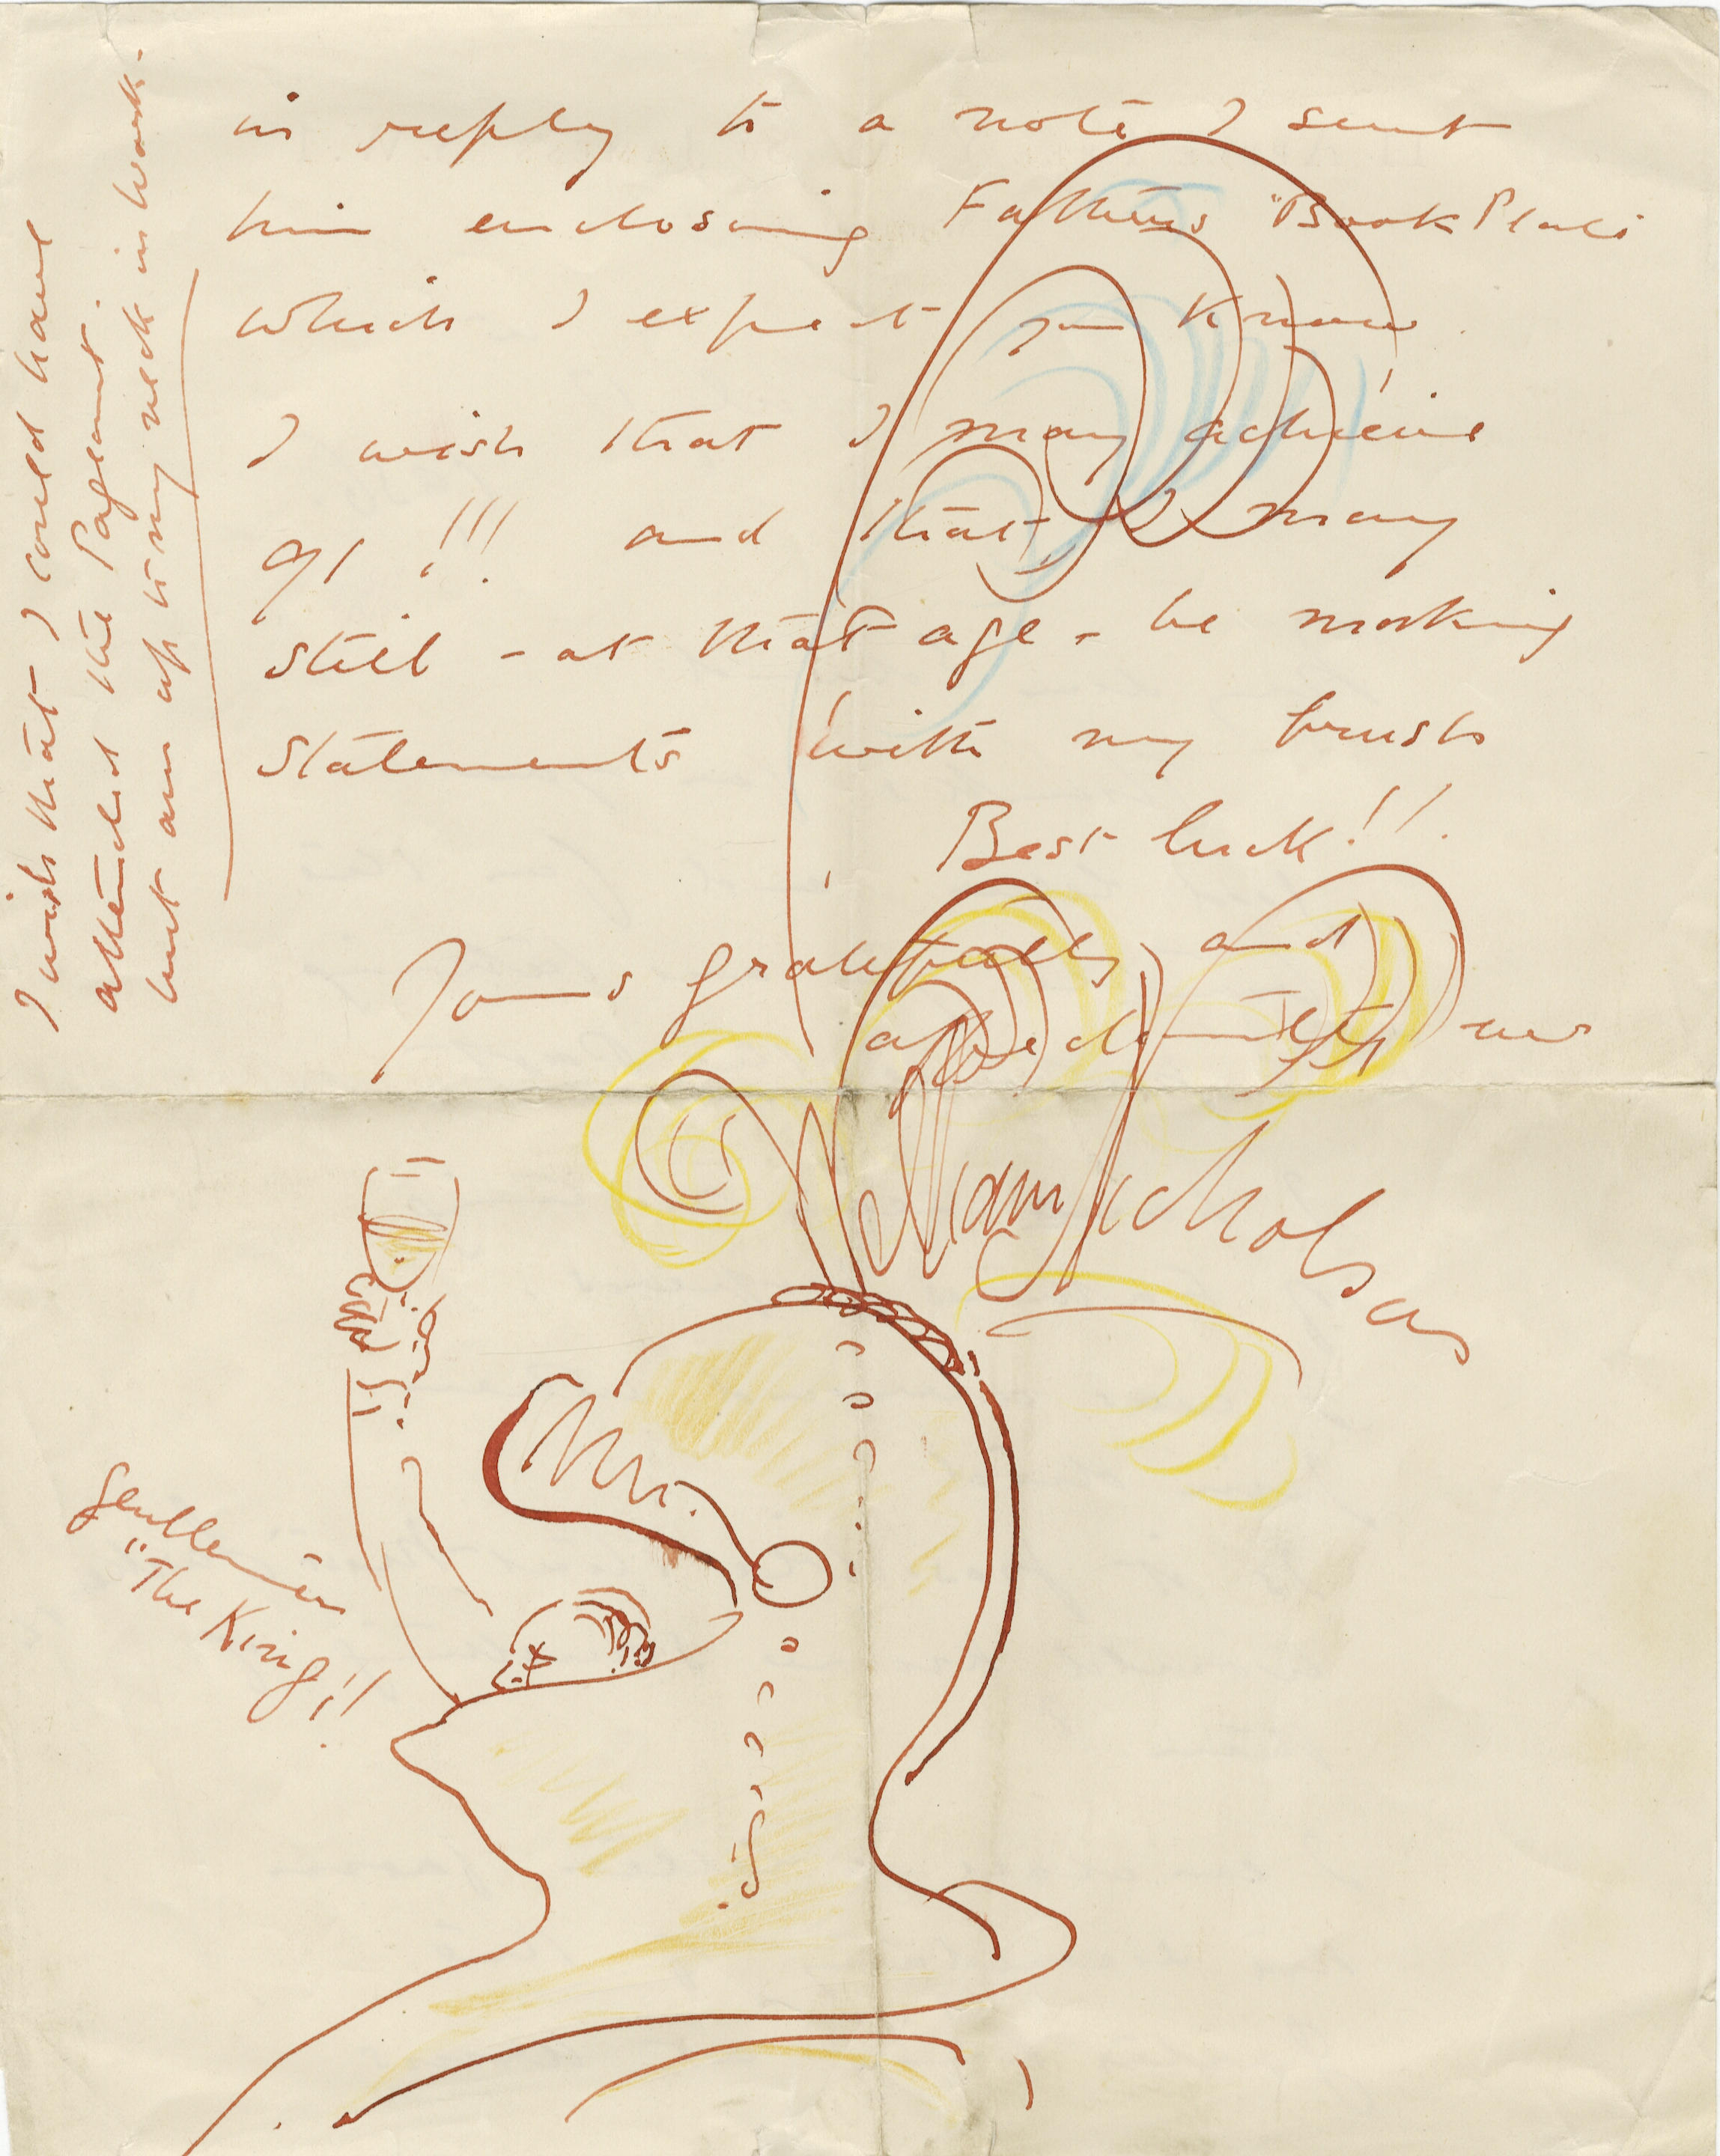 in reply to a note I sent
him enclosing Fathers "Book Plate
which I expect you know.
I wish that I may achieve
91 !!! and that I may
still - at that age - be making
statements with my brush
Best luck!!.
Yours gratefully and
affectionately ever
William Nicholson
Gentlemen
"The King!!
I wish that I could have
attended the Pageant.
but am up to my neck in work.